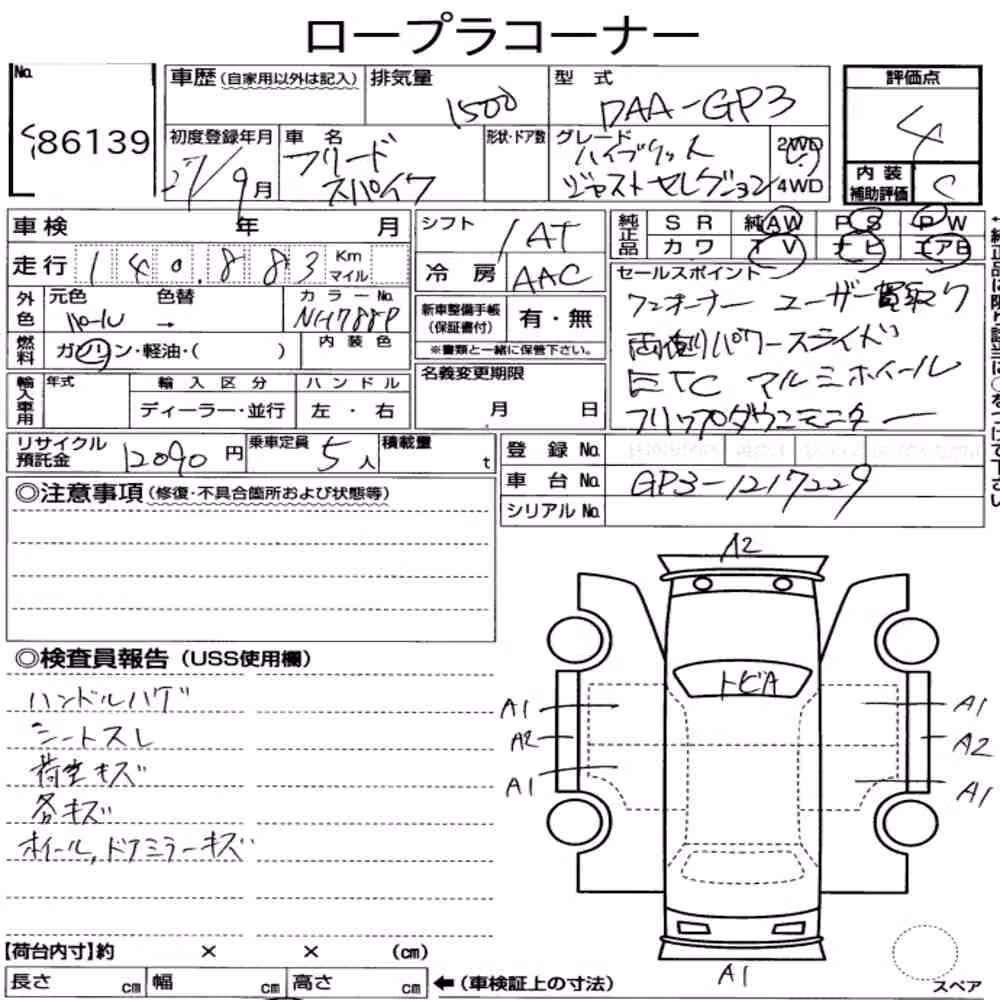 ロープラコーナー
No.
86139
車歴(自家用以外は記入)
排気量
1500
型式
DAA-GP3
評価点
4
初度登録年月
27/9月
車名
フリード
スパイク
形状・ドア数
グレード
ハイブリット
ジャストセレクション
2WD
4WD
内装
補助評価
C
車検 年 月
シフト
IAT
純正品
SR 純AW PS PW
カワ TV ナビ エアB
走行 140,883 Km
マイル
冷房 AAC
セールスポイント
ワンオーナー ユーザー買取り
両側パワースライド
ETC アルミホイール
フリップダウンモニター
外色
元色 色替
パール →
カラーNo.
NH788P
新車整備手帳
(保証書付)
有・無
※書類と一緒に保管下さい。
燃料
ガソリン・軽油・( )
内装色
輸入車用
年式
輸入区分
ディーラー・並行
ハンドル
左・右
名義変更期限
月 日
リサイクル
預託金
12090円
乗車定員 5人
積載量 t
登録No.
車台No. GP3-1217229
シリアルNo.
◎注意事項(修復・不具合箇所および状態等)
◎検査員報告(USS使用欄)
ハンドルハゲ
シートスレ
荷室キズ
各キズ
ホイール,ドアミラーキズ
A2
トビA
A1
A2
A1
A1
A2
A1
A1
スペア
【荷台内寸】約 × × (cm)
長さ cm 幅 cm 高さ cm ←(車検証上の寸法)